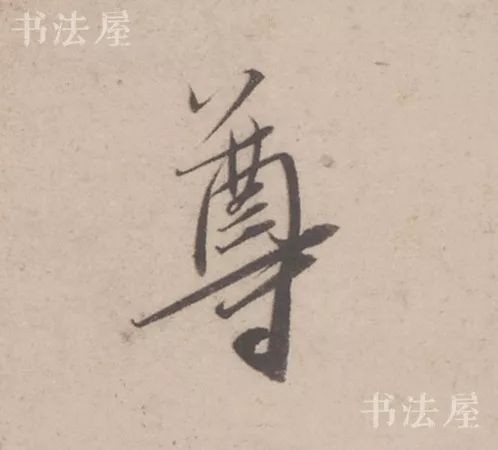 书法屋
尊
书法屋